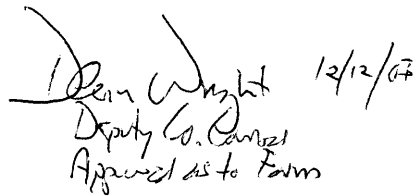 Dean Wright 12/12/07
Deputy Co. Counsel
Approved as to Form